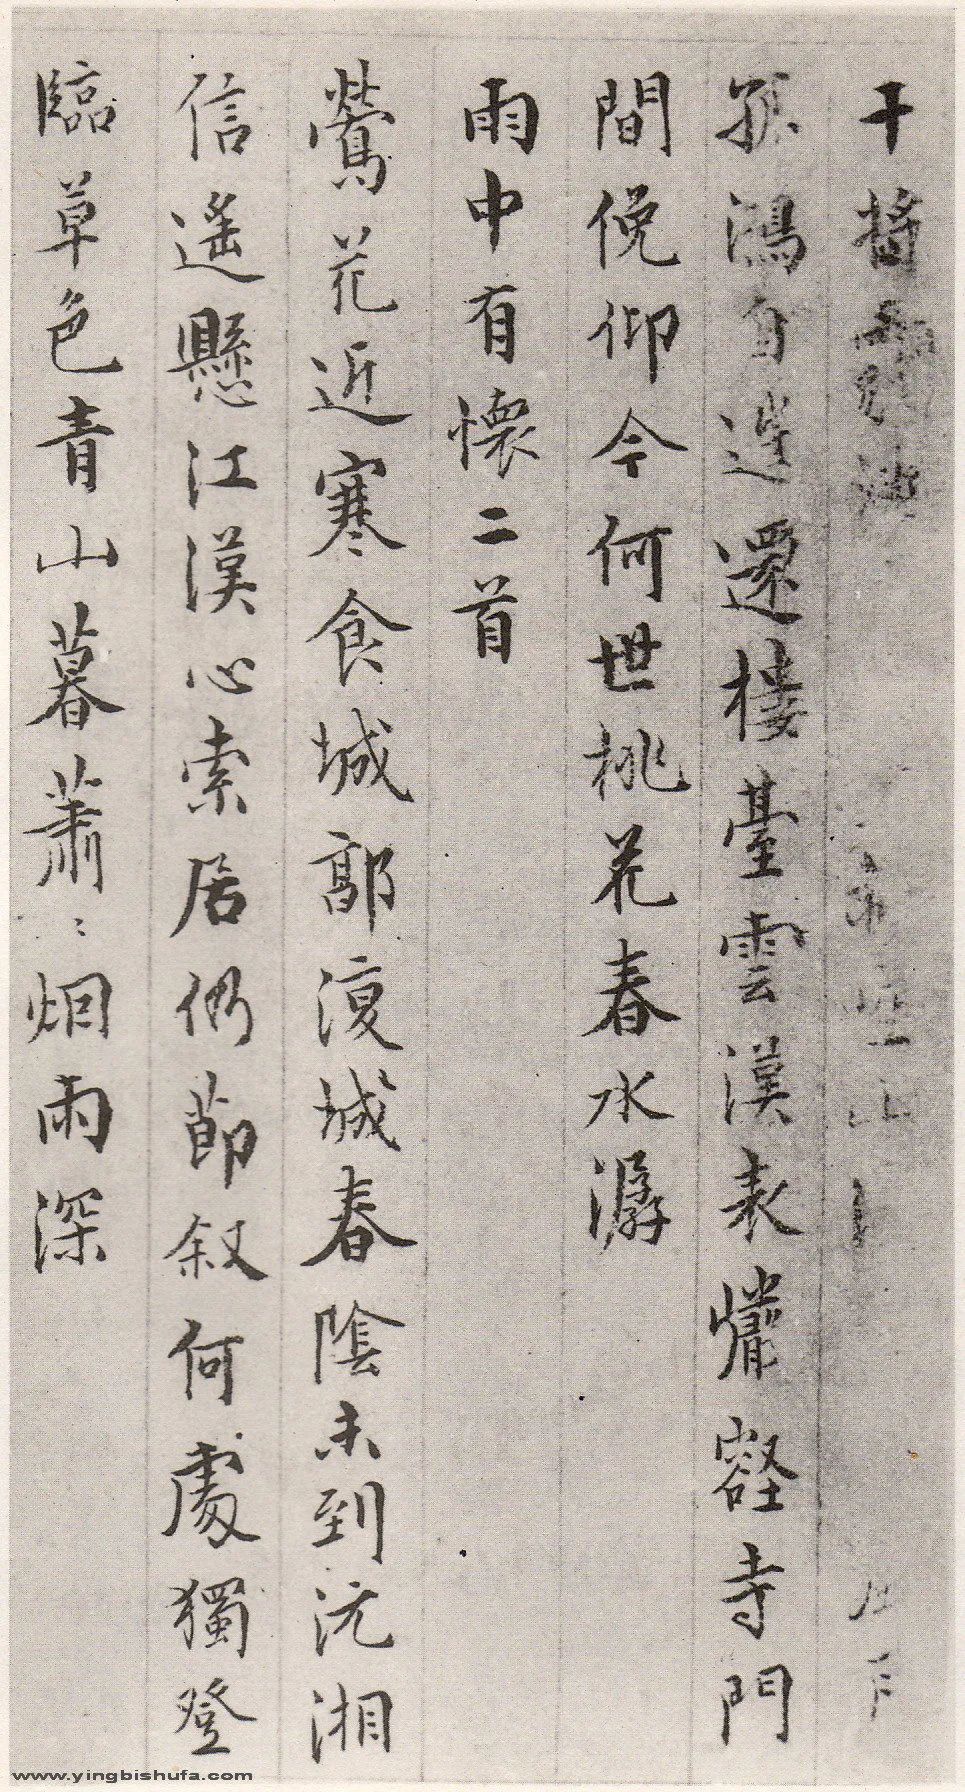 干將
孤鴻自還樓臺雲漢表壑寺門
間俛仰今何世桃花春水潺
雨中有懷二首
鶯花近寒食城郭復城春陰未到沅湘
信遙懸江漢心索居仍節叙何處獨登
臨草色青山暮蕭〻烟雨深
www.yingbishufa.com